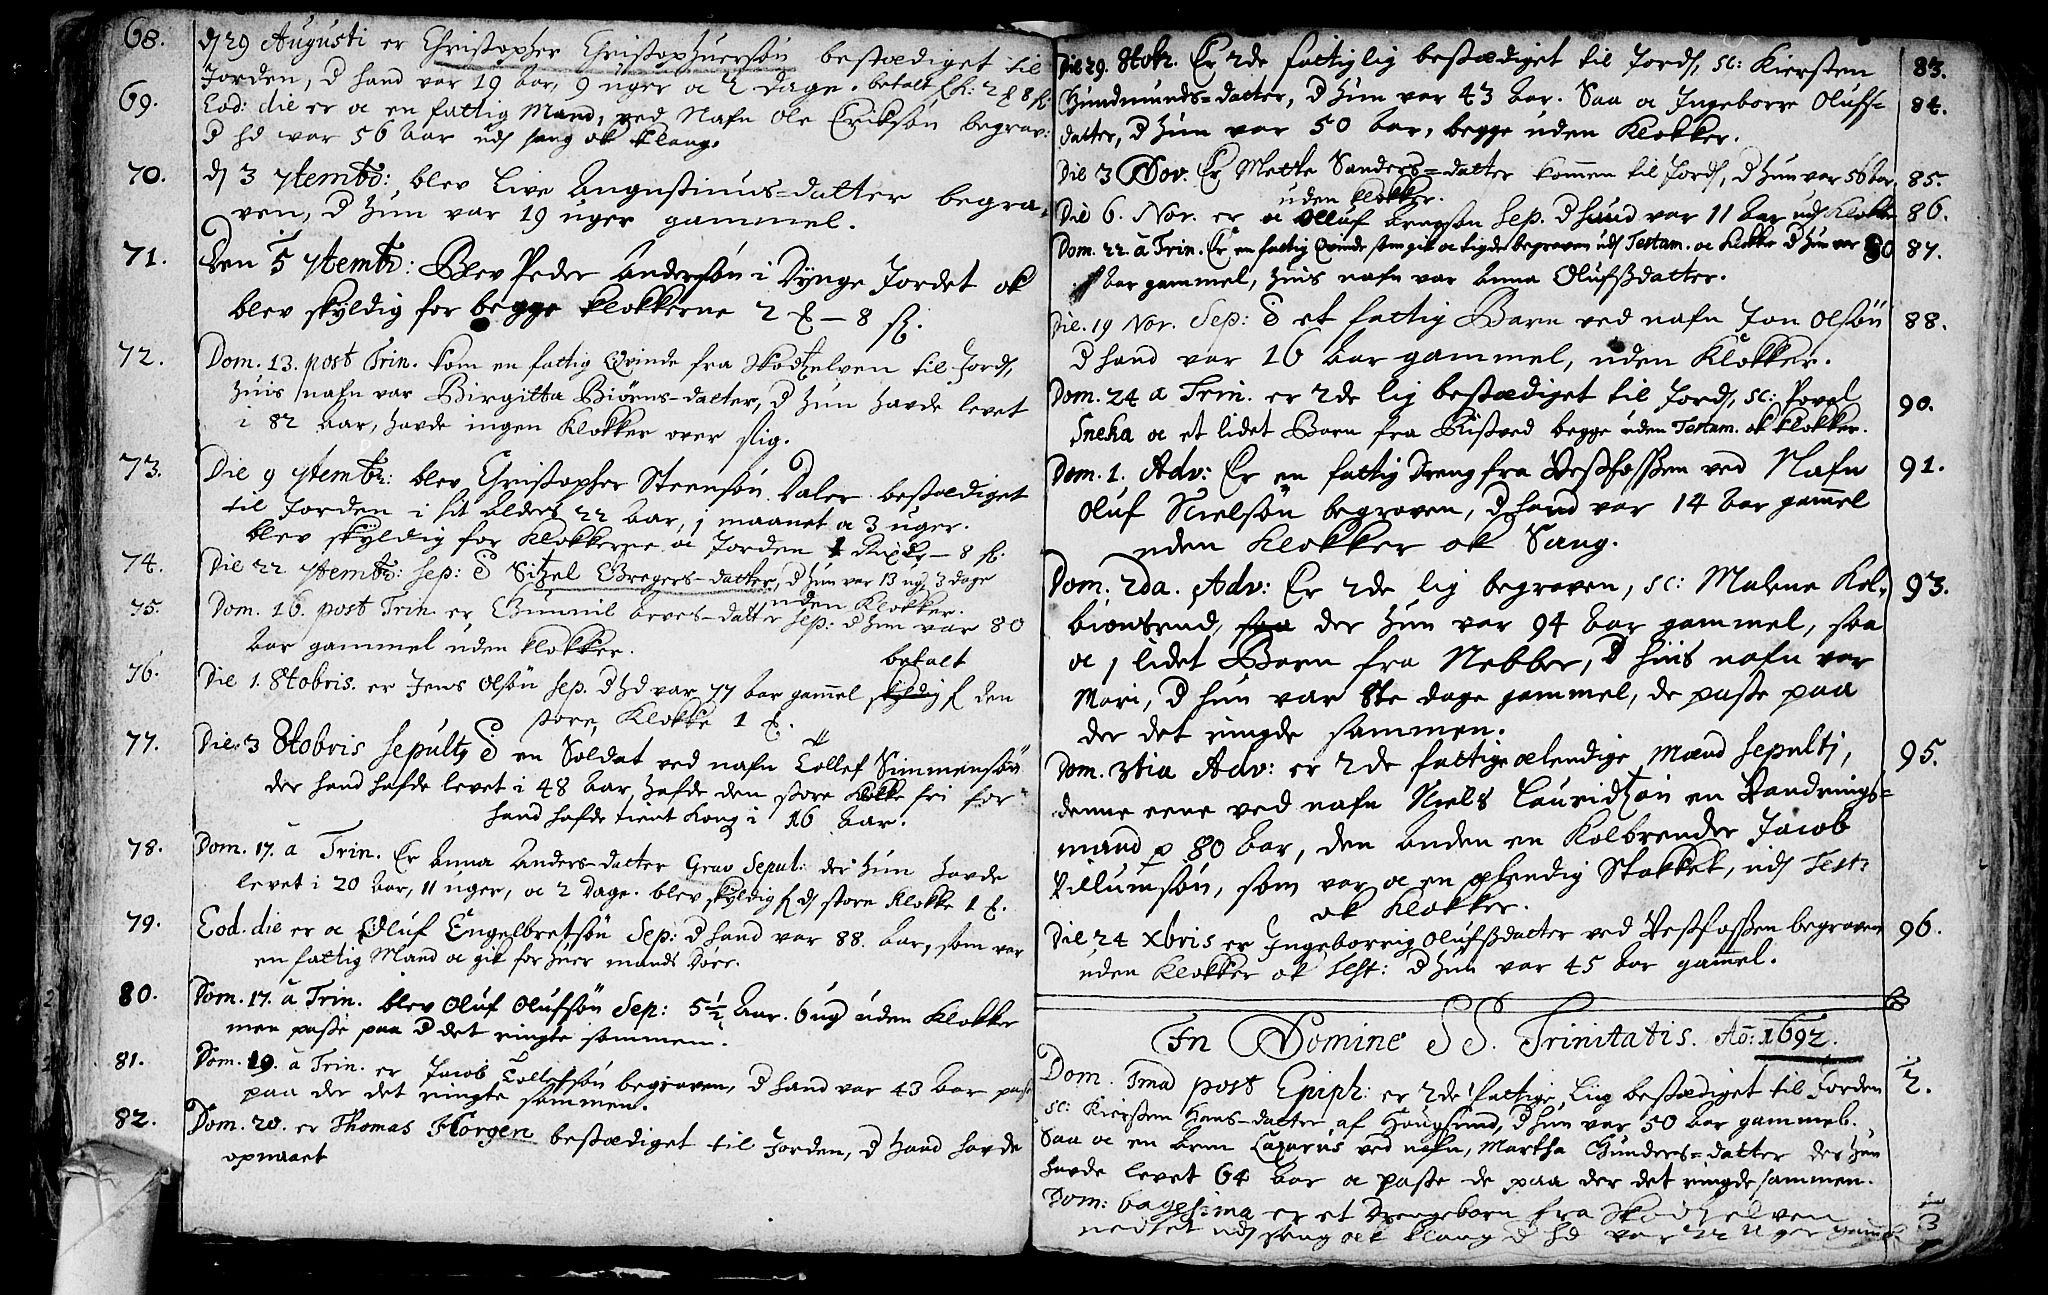 68. dj 29 Augusti er Christopher Christophuersøn bestædiget til
Jorden, d hand var 19 aar, 9 uger oc 2 dage. betalt
69. Eod: die er oc en fattig Mand, ved Nafn Ole Eriksøn begrav:
d hd var 56 aar uds sang ok klang.
70. dj 3 7tembr: blev Live Augustinus=datter begra-
ven, d hun var 19 uger gammel.
71. Den 5 7tembr: Blev Peder Andersøn i Dynge Jordet ok
blev skyldig for begge klokkerne 2 — 8 ß.
72. Dom. 13. post Trin. kom en fattig Qvinde fra Skodtzelven til Jords,
huis nafn var Birgitta Biørns-datter, d hun havde levet
i 82 Aar, havde ingen Klokker over slig.
73. Die 9 7tembr: blev Christopher Steensøn Daler bestædiget
til Jorden i sit alders 22 aar, 1 maanet oc 3 uger.
blev skyldig for Klokkerne oc Jorden 1 — 8 ß:
74. Die 22 7tembr: Sep: d Sitzel Gregers-datter, d hun var 13 ug 3 dage
uden Klokker.
75. Dom. 16. post Trin. er Gunnil Arves-datter sep: d hun var 80
aar gammel uden klokker.
76. Die 1. 8tobris. er Jens Olsøn sep. d hd var 77 aar gamel skyldig f den
betalt
store Klokke 1
77. Die 3 8tobris sepult, d en Soldat ved nafn Tollef Simmensøn
der hand hafde levet i 48 aar, hafde den store Klokke fri for
hand hafde tient Kong i 16 aar.
78. Dom. 17. à Trin. Er Anna Anders-datter Grav Sepul: der hun havde
levet i 20 Aar, 11 uger, oc 2 dage. blev skyldig f ds store Klokke 1
79. Eod. die er oc Oluf Engelbretsøn Sep: d hand var 88. aar, som var
en fattig Mand oc gik for huer mands doer.
80. Dom. 17. à Trin. blev Oluf Olufsøn Sep: 5½ Aar. 6 ug uden Klokker
men passe paa d det ringte sammem.
81. Dom. 19. à Trin. er Jacob Tollefsøn begraven, d hand var 43 aar passe
paa der det ringte sammen.
82. Dom. 20. er Thomas Horgen bestædiget til Jorden, d hand havde
opnaaet
Die 29. 8tobr. Er 2de fattig lig bestædiget til Jords, sc: Kiersten 83.
Gundmunds=datter, d hun var 43 aar. Saa oc Ingeborre Olufs= 84.
datter, d hun var 50 aar, begge uden Klokker.
Die 3 Nov. Er Mette Sanders=datter kommen til Jords, d hun var 56 aar, 85.
uden klokker.
Die 6. Nov. er oc Olluf sep. d hand var 11 aar uds Klokke 86.
Dom. 22. à Trin. Er en fattig Qvinde som gik oc tigde begraven uds Testam. oc klokke d hun var 80 87.
aar gammel, huis nafn var Anna Olufsdatter.
Die. 19 Nov. Sep: d et fattig Barn ved nafn Jon Olsøn 88.
d hand var 16 aar gammel, uden Klokker.
Dom. 24 a Trin. er 2de lig bestædiget til Jords, sc: Povel 90.
Sneka oc et lidet Barn fra Ristved begge uden Testam. ok klokker.
Dom. 1. Adv: Er en fattig dreng fra Vestfossen ved Nafn 91.
Oluf Nielsøn begraven, d hand var 14 aar gamel
uden Klokker ok Sang.
Dom. 2da. Adv: Er 2de lig begraven, sc: Malene Kol- 93.
biønsrud, saa der hun var 94 aar gammel, saa
oc 1 lidet Barn fra Nebber, d huis nafn var
Mari, d hun var 8te dage gammel, de passe paa
der det ringde sammen.
Dom. 3tia Adv: er 2de fattige ælendige Mænd sepulti, 95.
denne eene ved nafn Niels Lauridtzøn en Vandrings=
mand p 80 aar, den anden en Kolbrender Jacob
Villumsøn, som var oc en ælendig Stakket, uds Test:
ok klokker.
Die 24 Xbris er Ingeborrig Olufsdatter ved Vestfossen begraven 96.
uden Klokker ok Test: d hun var 45 aar gamel.
In Nomine SS. Trinitatis. Ao: 1692.
Dom. 1ma post Epiph: er 2de fattige Lig bestædiget til Jorden 2.
sc: Kiersten Hans-datter af Hougsund, d hun var 50 aar gammel.
Saa oc en arm Lazarus ved nafn, Martha Gunders=datter der hun
havde levet 64 aar oc passe de paa der det ringde sammen.
Dom: 6agesima er et Drengebarn fra Skodtzelven 3
nedset uds sang ock klang d hd var 22 Uger gammel